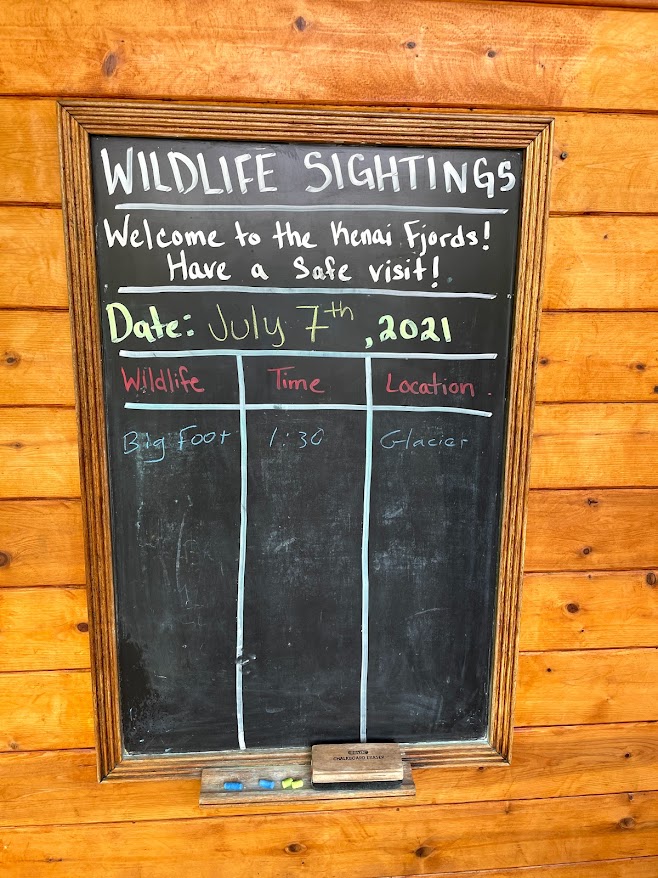 WILDLIFE SIGHTINGS
Welcome to the Kenai Fjords!
Have a Safe visit!
Date: July 7th, 2021
Wildlife Time Location
Big Foot 1:30 Glacier
CHALKBOARD ERASER